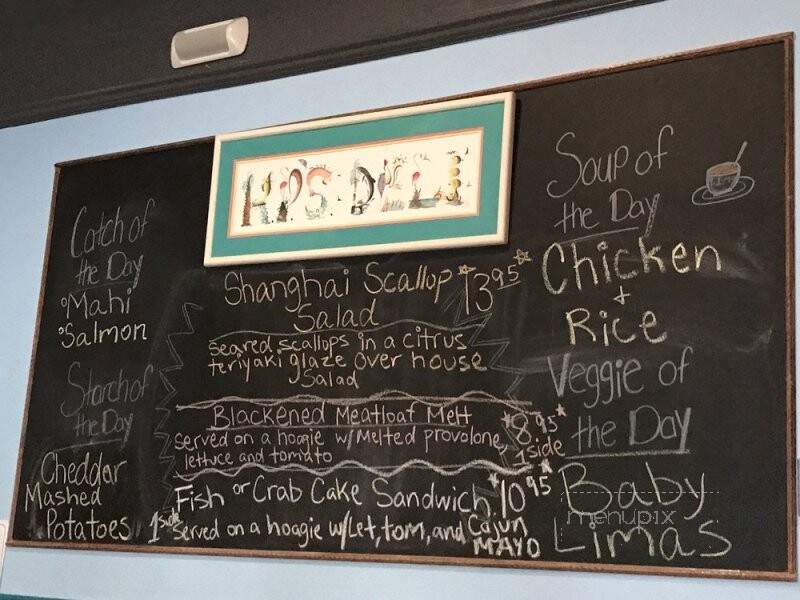 HP'S DELI
Catch of
the Day
°Mahi
°Salmon
Starch of
the Day
Cheddar
Mashed
Potatoes
Shanghai Scallop *13.95*
Salad
seared scallops in a citrus
teriyaki glaze over house
Salad
Blackened Meatloaf Melt *8.95*
served on a hoagie w/ Melted provolone, 1 side
lettuce and tomato
Fish or Crab Cake Sandwich *10.95*
1 side served on a hoagie w/ Let, tom, and Cajun
MAYO
Soup of
the Day
Chicken
+
Rice
Veggie of
the Day
Baby
Limas
menupix